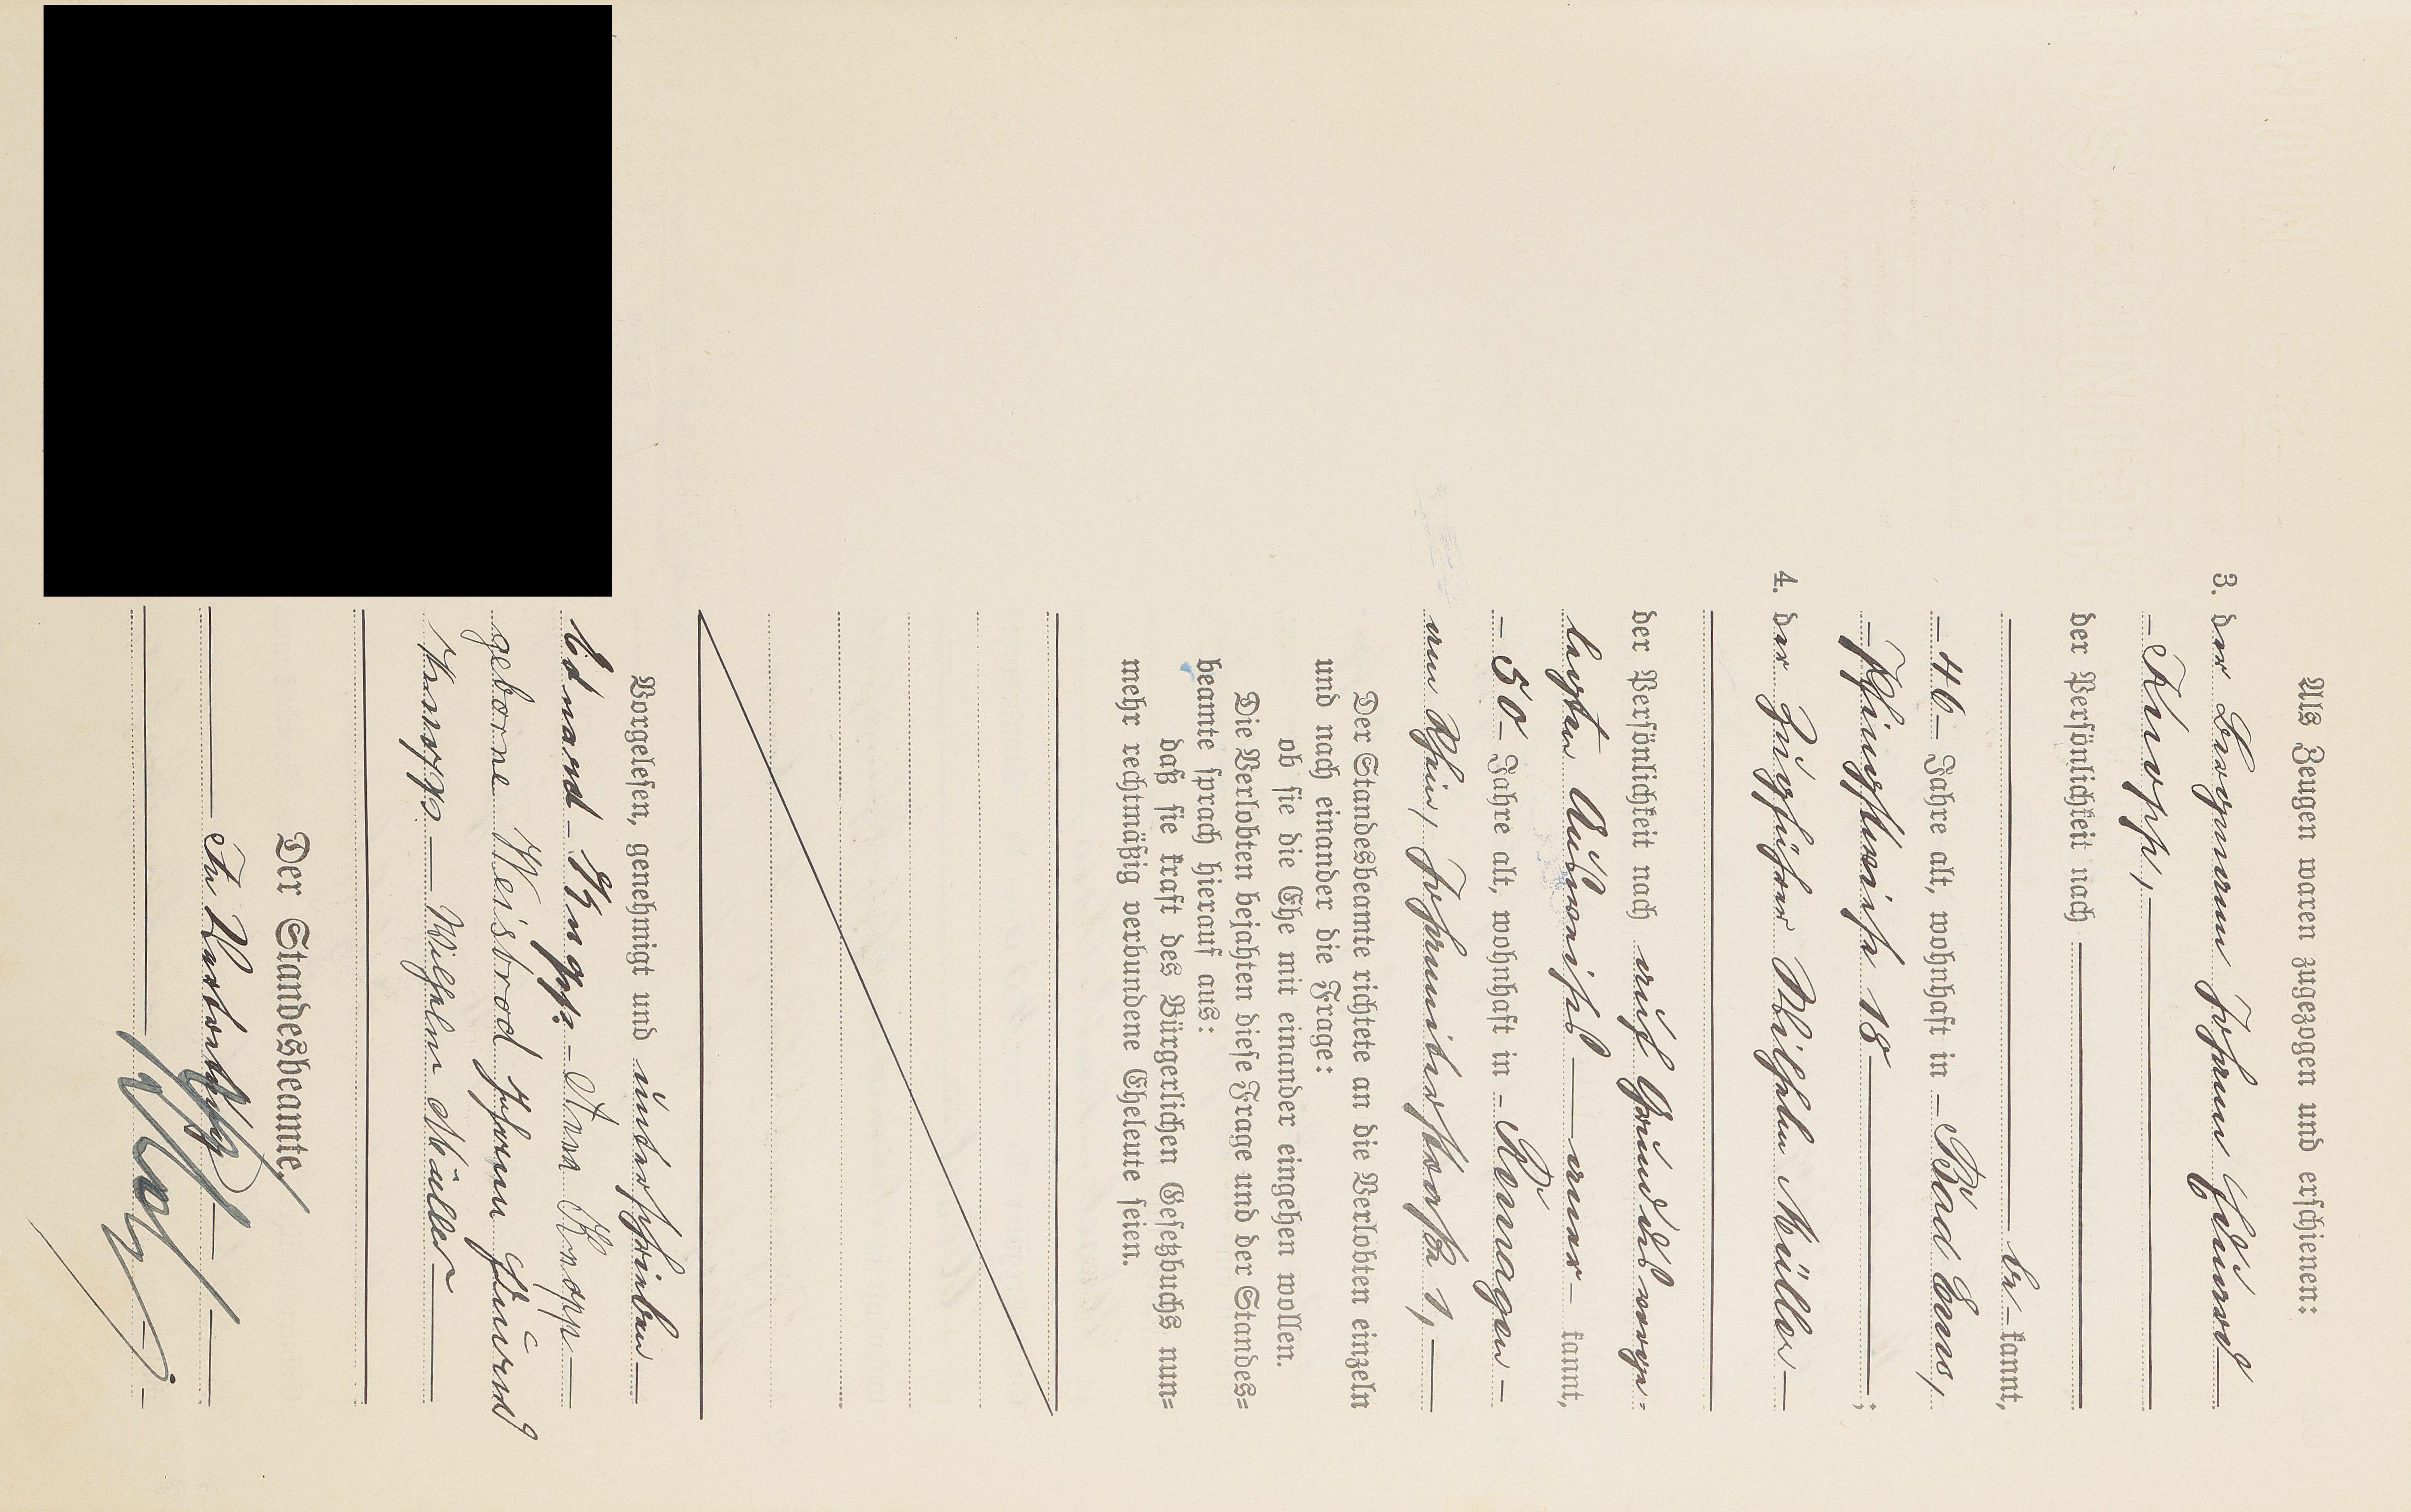 Als Zeugen waren zugezogen und erschienen:
3. der Bergmann Johann Eduard
- Knopp,
der Persönlichkeit nach
be- kannt,
- 46 - Jahre alt, wohnhaft in - Bad Ems,
- Pfingstweise 18
;
4. der Zugführer Wilhelm Müller
der Persönlichkeit nach auf Grund des vorge-
legten Ausweises - aner- kannt,
- 50 - Jahre alt, wohnhaft in - Remagen -
am Rhein, Johanniterstraße 1,
Der Standesbeamte richtete an die Verlobten einzeln
und nach einander die Frage:
ob sie die Ehe mit einander eingehen wollen.
Die Verlobten bejahten diese Frage und der Standes=
beamte sprach hierauf aus:
daß sie kraft des Bürgerlichen Gesetzbuchs nun=
mehr rechtmäßig verbundene Eheleute seien.
Vorgelesen, genehmigt und unterschrieben
Eduard Knopp. - Anna Knopp
geborne Weisbrod Johann Eduard
Knopp - Wilhelm Müller
Der Standesbeamte,
In Vertretung